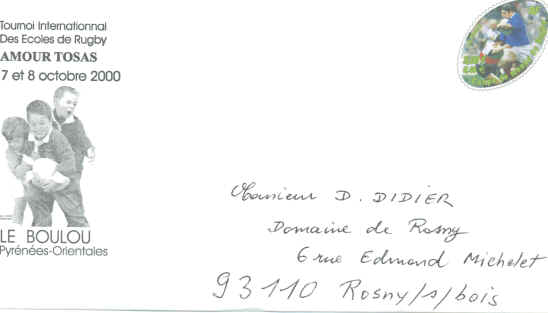 Tournoi Internationnal
Des Ecoles de Rugby
AMOUR TOSAS
7 et 8 octobre 2000
LE BOULOU
Pyrénées-Orientales
Monsieur D. DIDIER
Domaine de Rosny
6 rue Edmond Michelet
93110 Rosny/s/bois